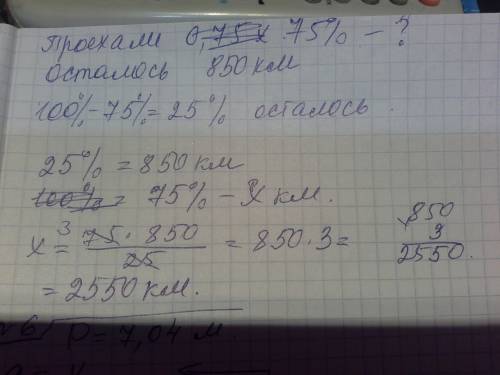 проехали 0,75x 75% - ?
осталось 850 км
100%-75%=25% осталось.
25% = 850 км
100% = 75% - X км.
x = 3 75 · 850 / 25 = 850 · 3 =
850
3
2550.
= 2550 км.
№6 P = 7,04 м.